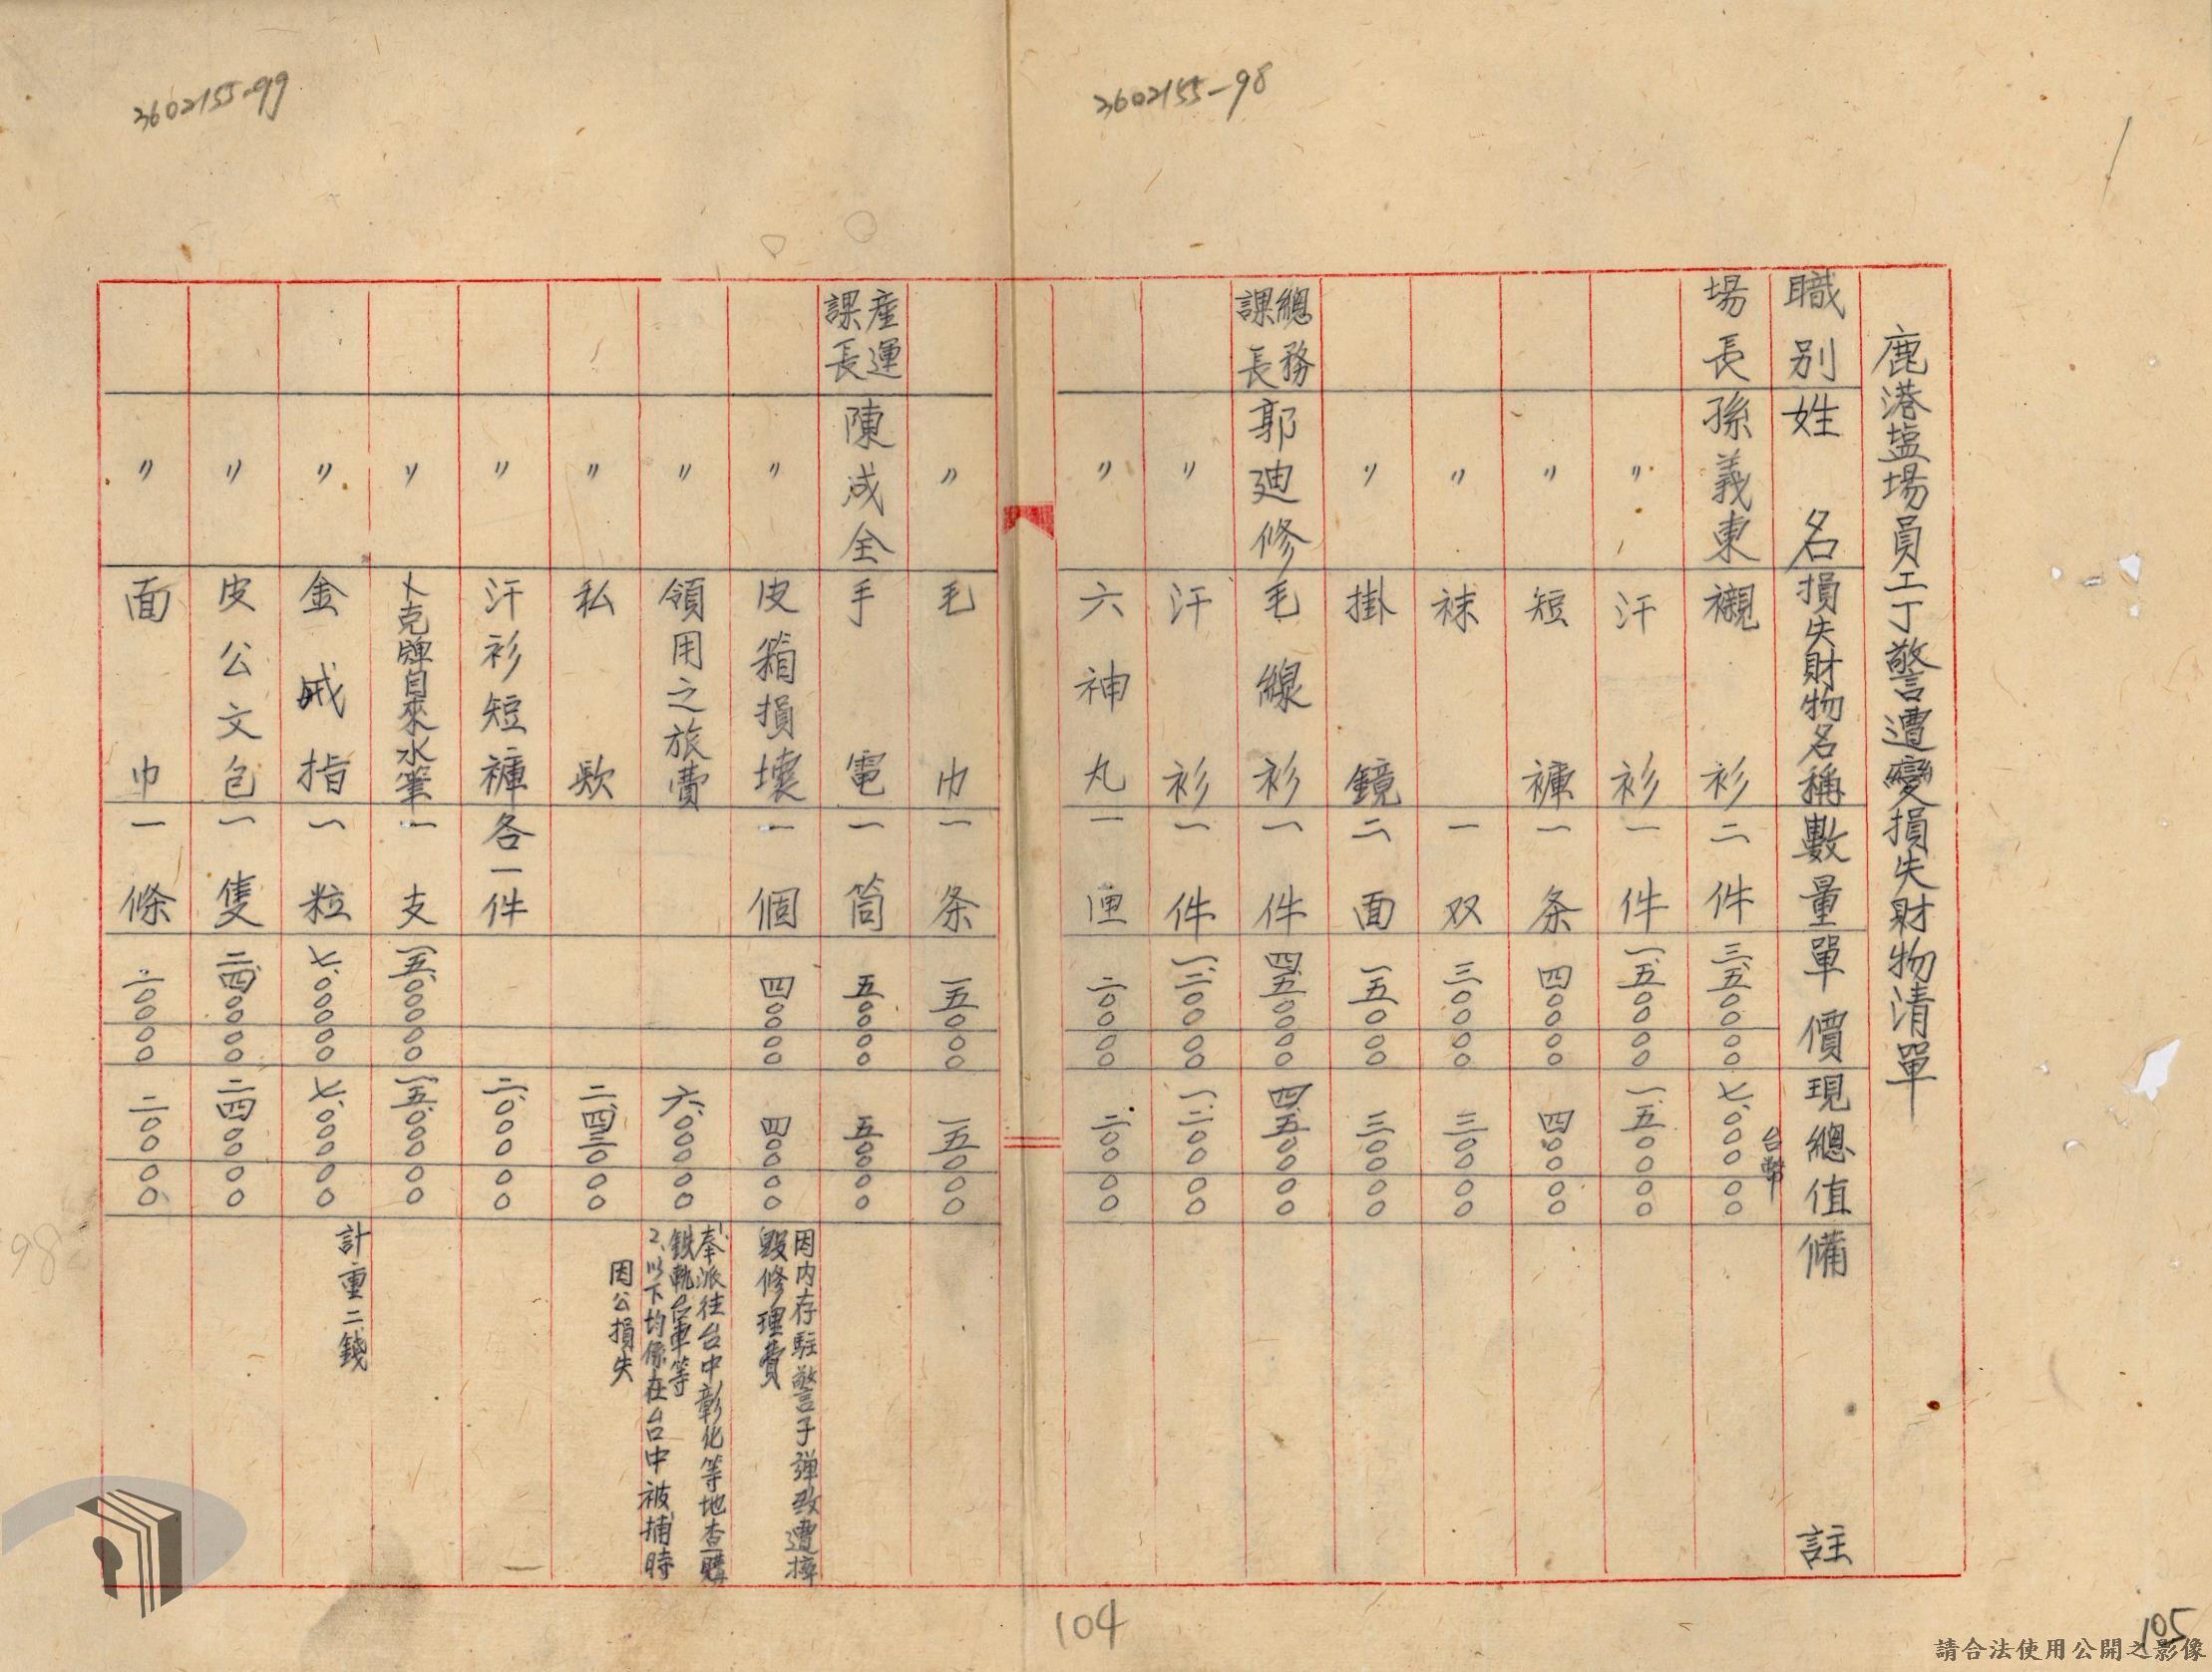 3602155-98
鹿港塩場員工丁警遭變損失財物清單
職別 姓名 損失財物名稱 數量 單價 現總值 備註
台幣
場長 孫義東 襯衫 二件 三、五〇〇〇〇 七、〇〇〇〇〇
〃 汗衫 一件 一、五〇〇〇〇 一、五〇〇〇〇
〃 短褲 一条 四〇〇〇〇 四〇〇〇〇
〃 袜 一双 三〇〇〇〇 三〇〇〇〇
〃 掛鏡 二面 一五〇〇〇 三〇〇〇〇
總務課長 郭廸修 毛線衫 一件 四、五〇〇〇〇 四、五〇〇〇〇
〃 汗衫 一件 一、二〇〇〇〇 一、二〇〇〇〇
〃 六神丸 一匣 二〇〇〇〇 二〇〇〇〇
104
105
3602155-99
〃 毛巾 一条 一五〇〇〇 一五〇〇〇
產運課長 陳成全 手電 一筒 五〇〇〇〇 五〇〇〇〇
〃 皮箱損壞 一個 四〇〇〇〇 四〇〇〇〇 因内存駐警子彈致遭摔毀修理費
〃 領用之旅費 六、〇〇〇〇〇 奉派往台中彰化等地查購鉄軌台車等
2、以下均係在台中被捕時因公損失
〃 私欵 二、四三〇〇〇
〃 汗衫短褲 各一件 二、〇〇〇〇〇
〃 卜克牌自來水筆 一支 一五、〇〇〇〇〇 一五、〇〇〇〇〇
〃 金戒指 一粒 七、〇〇〇〇〇 七、〇〇〇〇〇 計重二錢
〃 皮公文包 一隻 二、四〇〇〇〇 二、四〇〇〇〇
〃 面巾 一條 二〇〇〇〇 二〇〇〇〇
98
請合法使用公開之影像